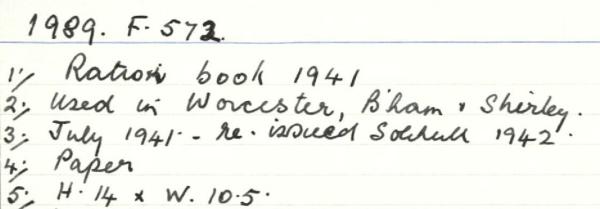 1989. F. 573.
1;/ Ration book 1941
2;/ Used in Worcester, B'ham & Shirley.
3;/ July 1941 - re-issued Solihull 1942.
4;/ Paper
5;/ H. 14 x W. 10.5.